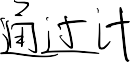 通过计